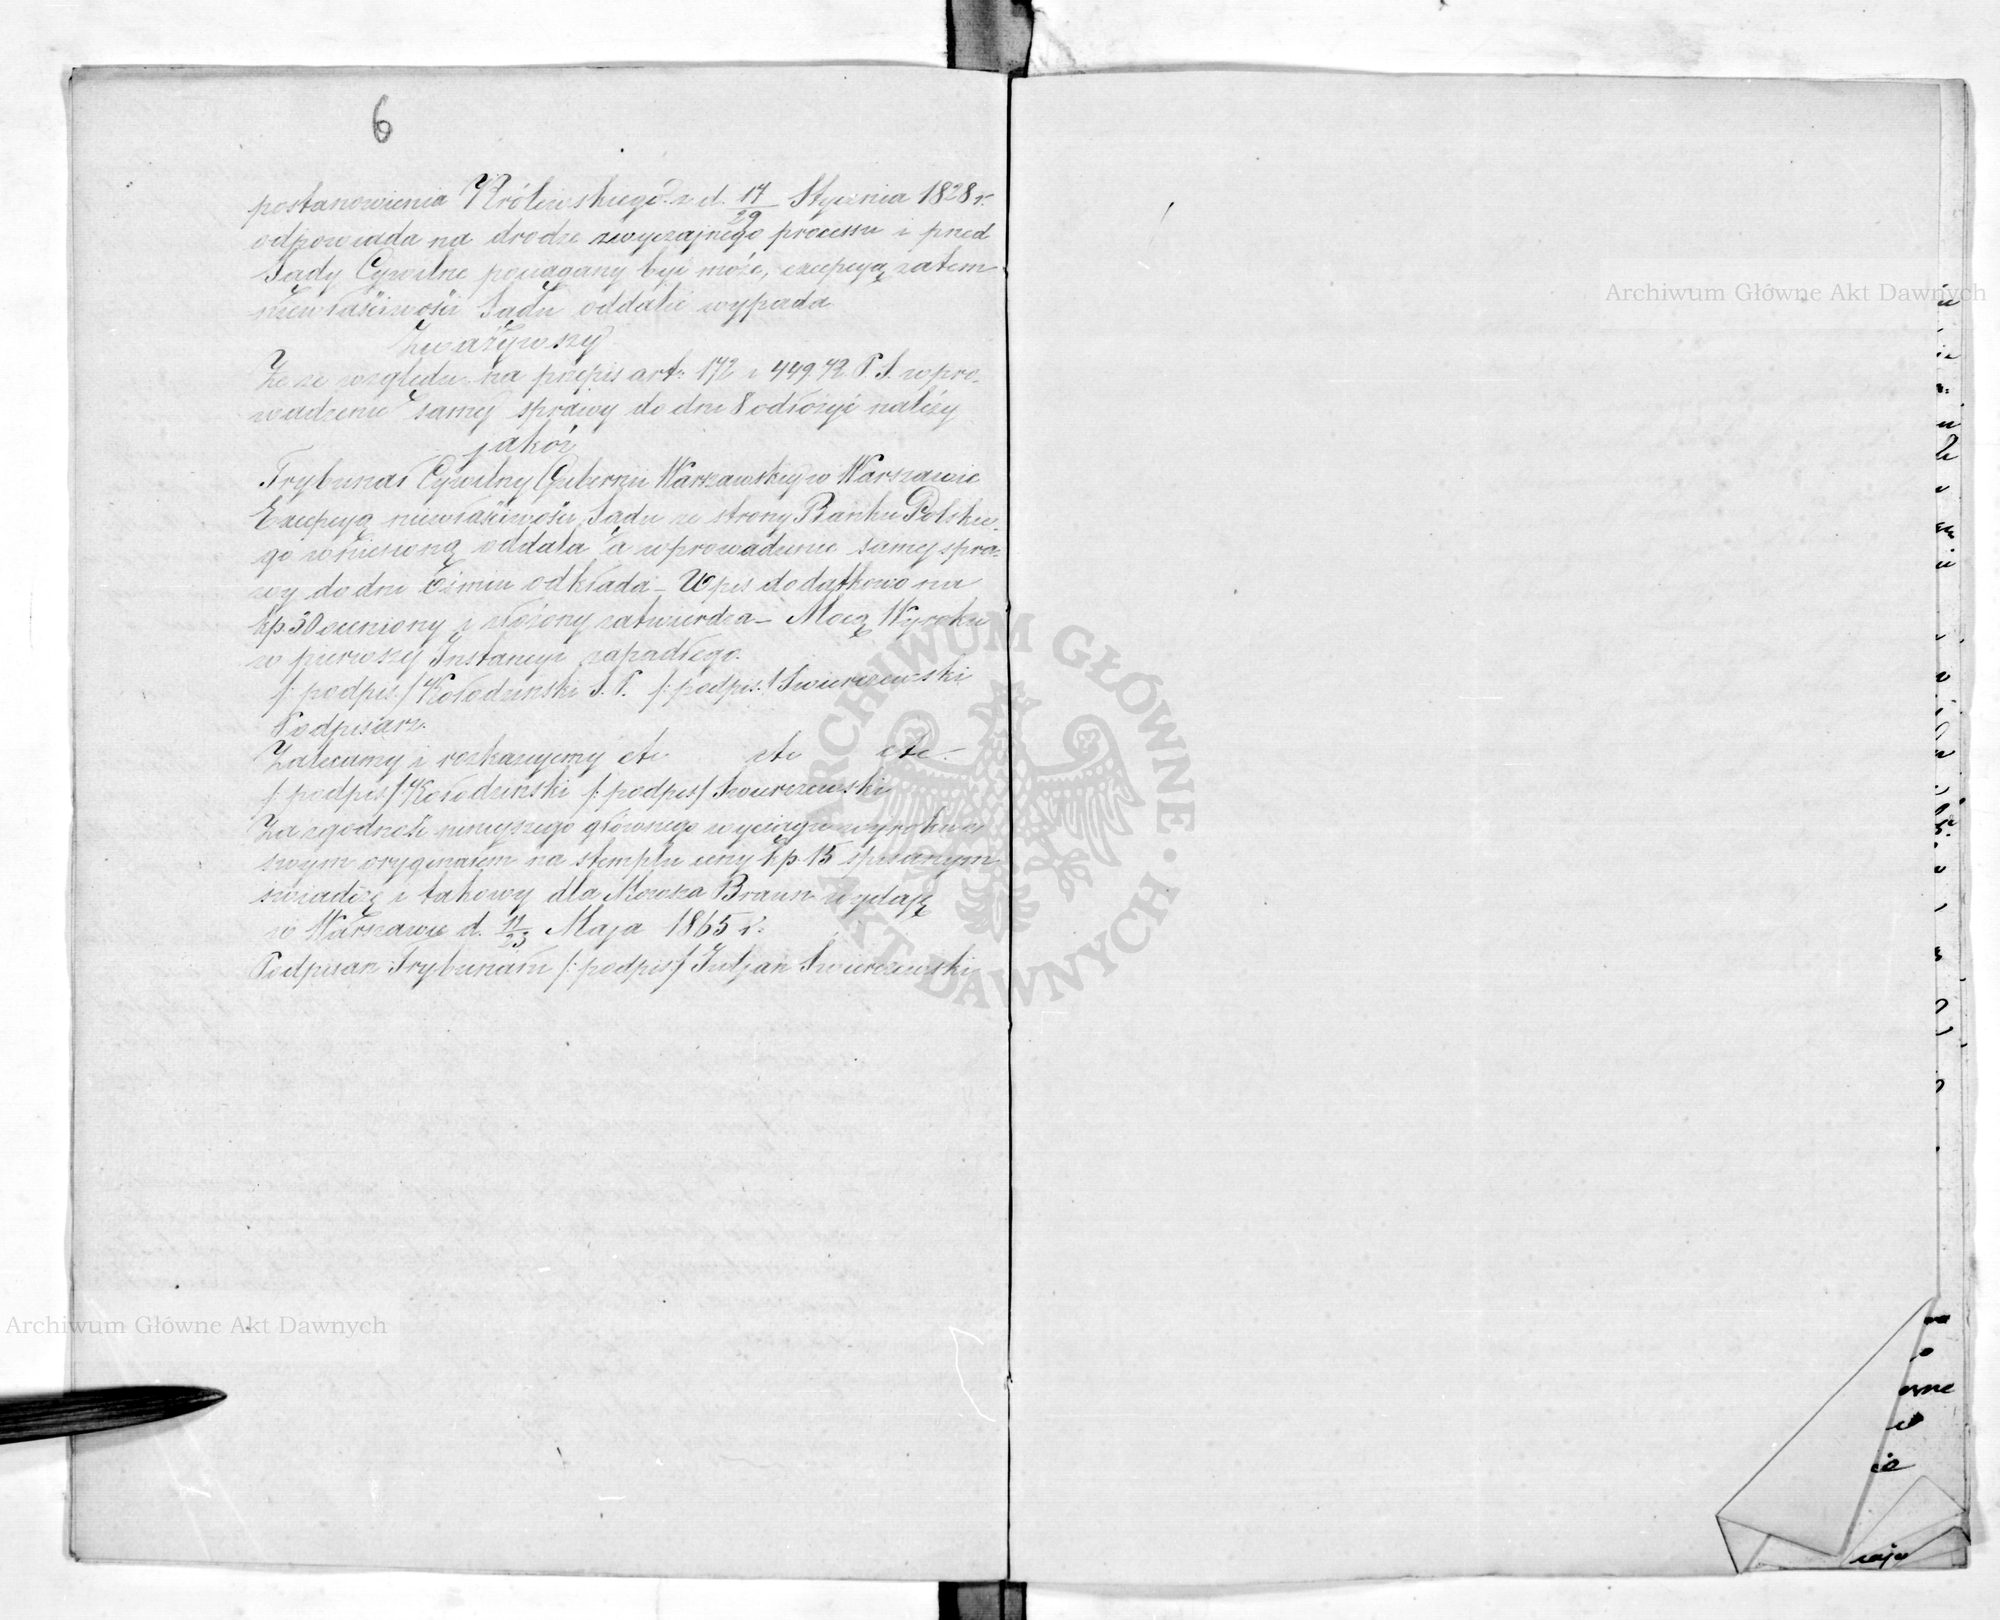 6
postanowienia Królewskiego z d. 17/29 Stycznia 1828 r.
odpowiada na drodze zwyczajnego processu i przed
Sądy Cywilne pociągany być może, excepcyą zatem
niewłaściwości Sądu oddalić wypada
Zważywszy
Że ze względu na przepis art: 172 i 449 72 P. S. wpro-
wadzenie samej sprawy do dni 8 odłożyć należy
jakoż
Trybunał Cywilny Gubernii Warszawskiej w Warszawie
Excepcyą niewłaściwości Sądu ze strony Banku Polskie-
go wniesioną oddala a wprowadzenie samej spra-
wy do dni ośmiu odkłada – Wpis dodatkowo na
Złp 30 oceniony i złożony zatwierdza – Mocą Wyroku
w pierwszej Instancyi zapadłego.
/: podpis :/ Kołodziński S. P. /: podpis :/ Swierczewski
Podpisarz.
Zalecamy i rozkazujemy etc etc etc –
/: podpis / Kołodziński /: podpis / Swierczewski
Za zgodność niniejszego głównego wyciągu wyroku z
swym oryginałem na stemplu ceny Złp. 15 spisanym
świadczę i takowy dla Moszka Braun wydaję
w Warszawie d. 11/23 Maja 1865 r.
Podpisarz Trybunału /: podpis / Juljan Swierczewski
Archiwum Główne Akt Dawnych
Archiwum Główne Akt Dawnych
ARCHIWUM GŁÓWNE AKT DAWNYCH